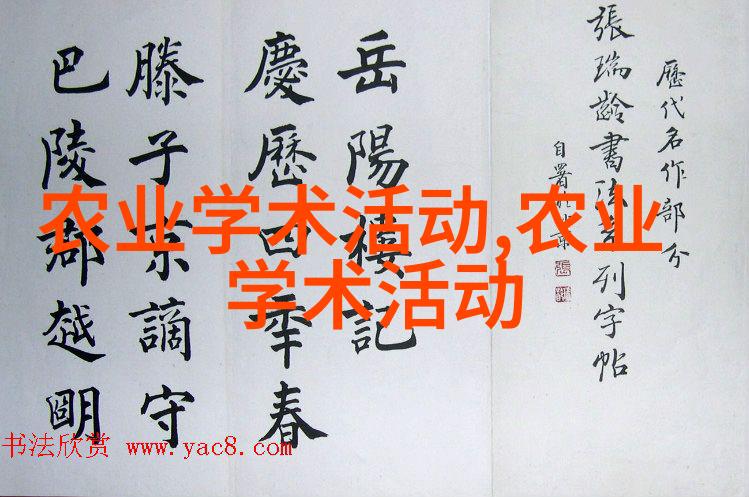 歷代名作部分
張瑞齡書法系列字帖
自署於北京
岳陽樓記
慶歷四秊春
滕子京謫守
巴陵郡越朙
农业学术活动,农业
学术活动
书法欣赏 www.yac8.com